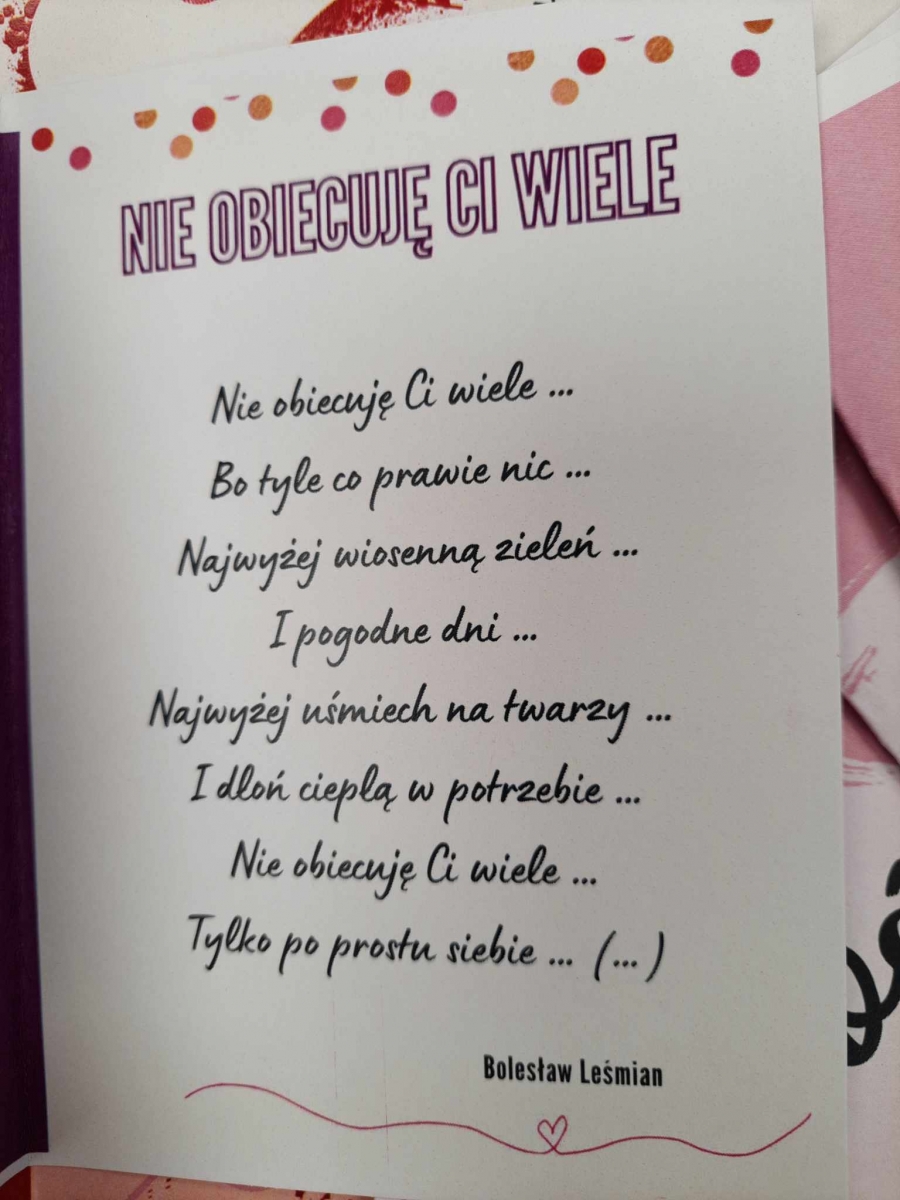 NIE OBIECUJĘ CI WIELE
Nie obiecuję Ci wiele ...
Bo tyle co prawie nic ...
Najwyżej wiosenną zieleń ...
I pogodne dni ...
Najwyżej uśmiech na twarzy ...
I dłoń ciepłą w potrzebie ...
Nie obiecuję Ci wiele ...
Tylko po prostu siebie ... (...)
Bolesław Leśmian